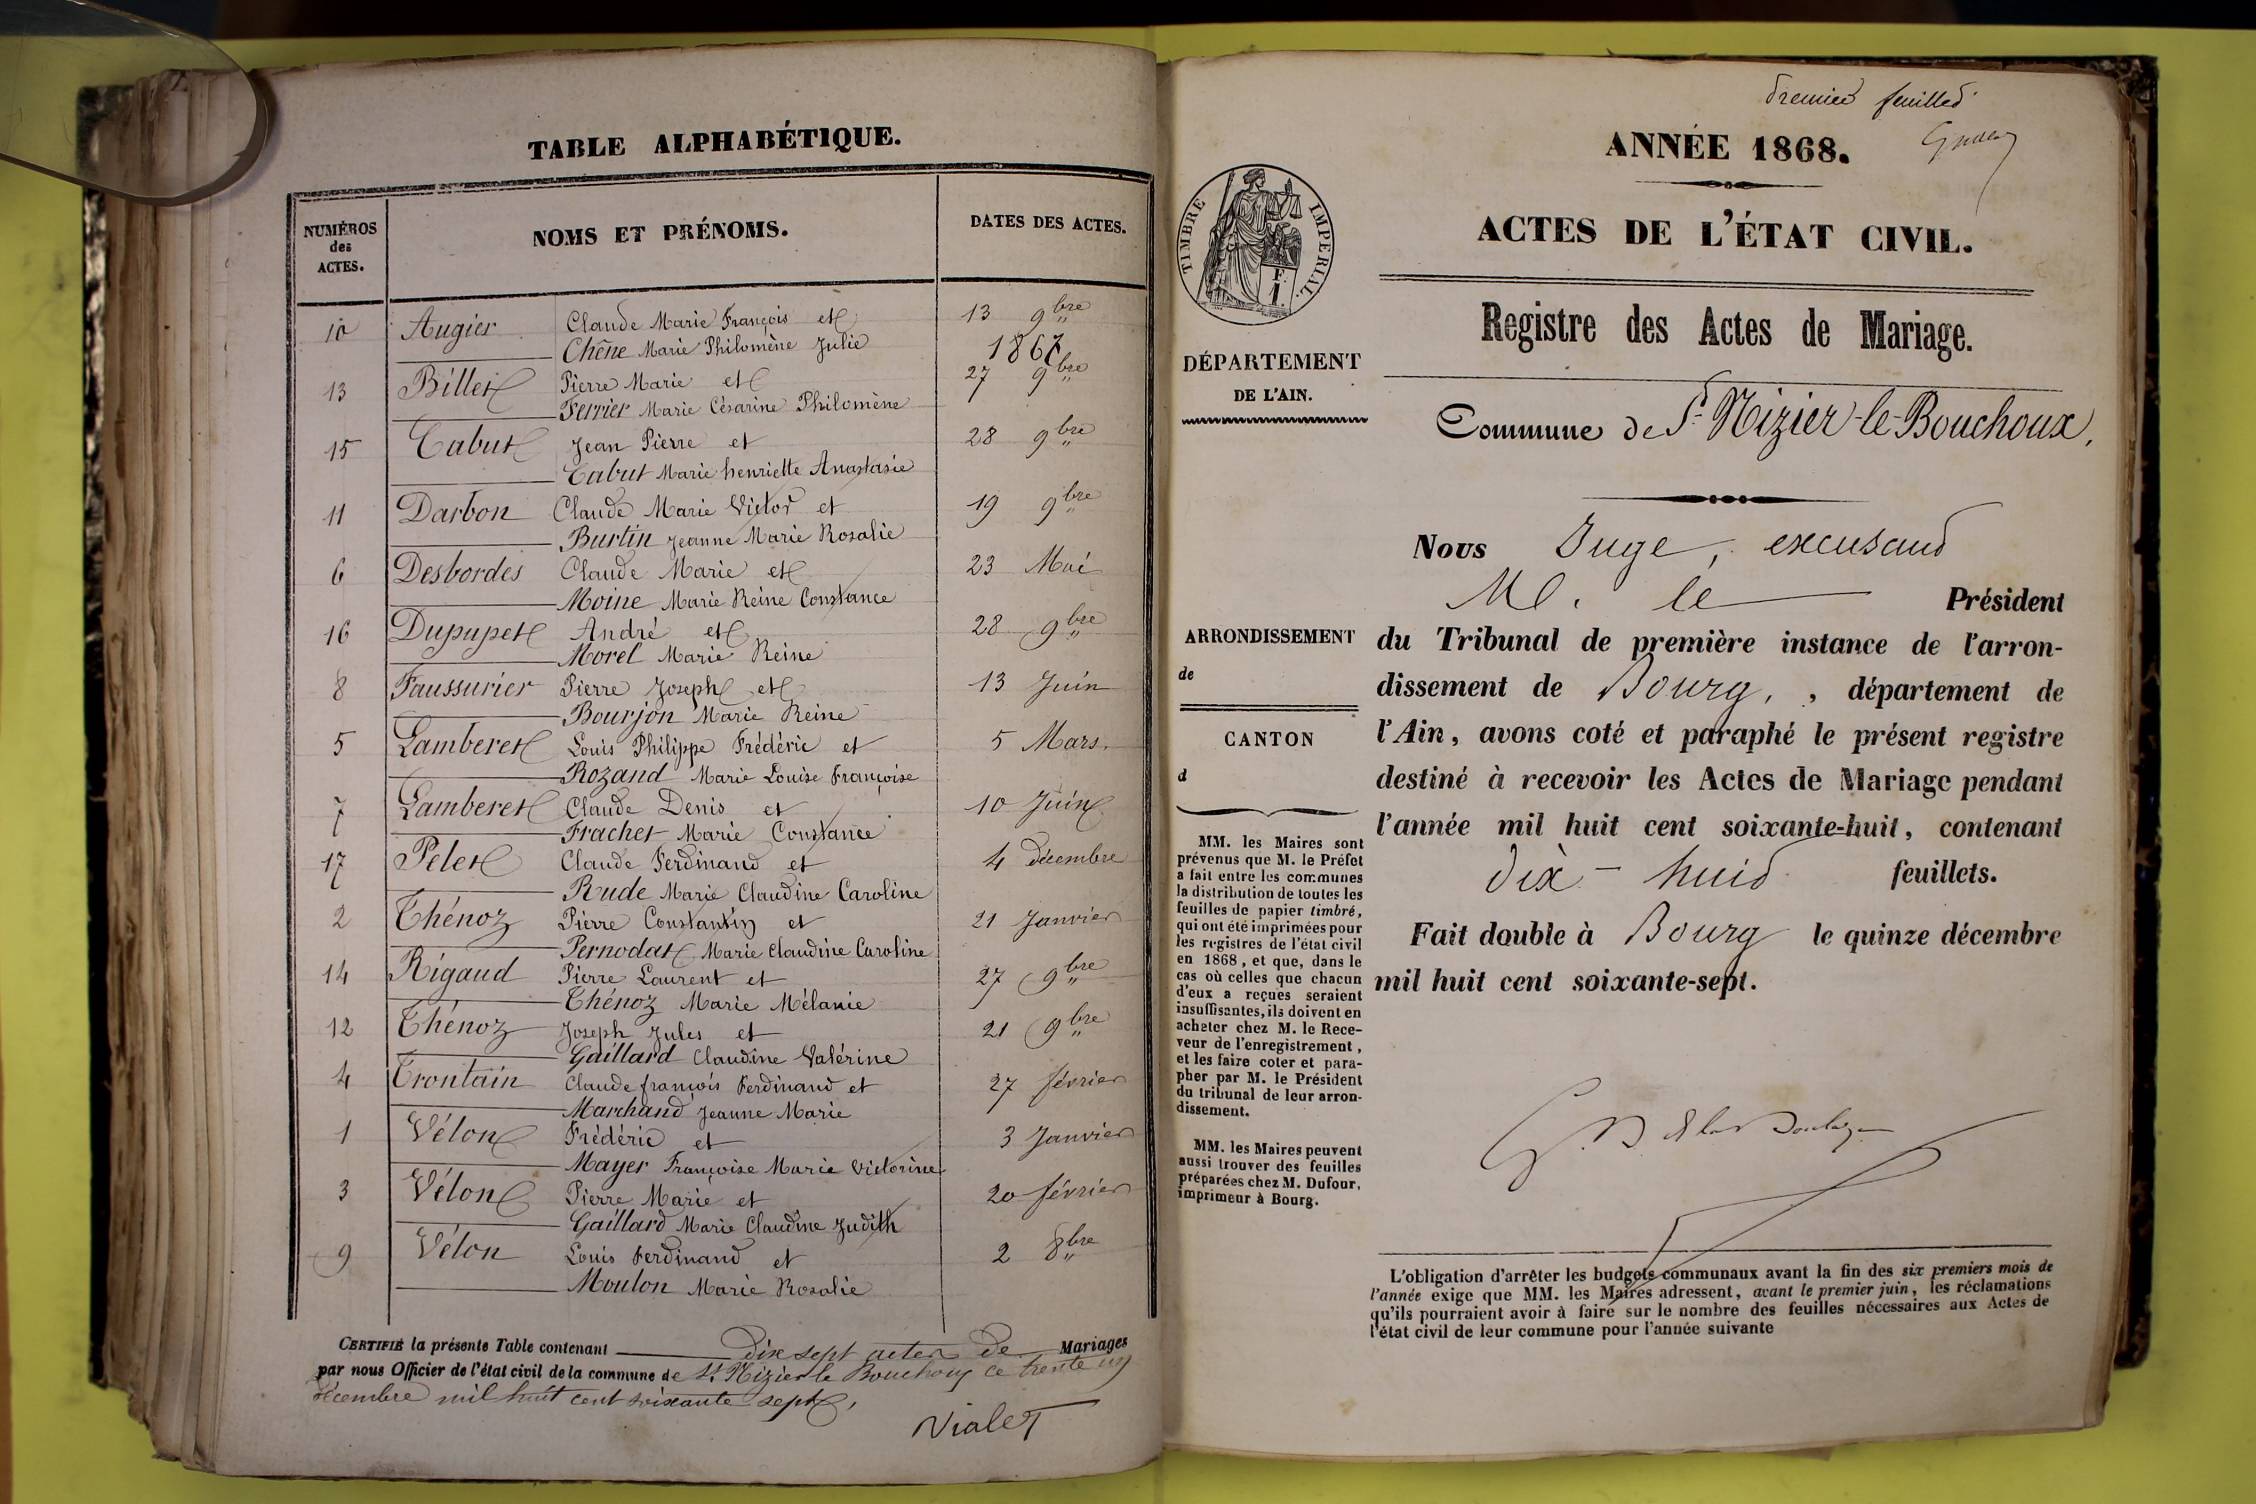 TABLE ALPHABÉTIQUE.
NUMÉROS
des
ACTES.
NOMS ET PRÉNOMS.
DATES DES ACTES.
10 Augier Claude Marie François et 13 9bre
Chêne Marie Philomène Julie 1867
13 Billet Pierre Marie et 27 9bre
Ferrier Marie Césarine Philomène
15 Cabut Jean Pierre et 28 9bre
Cabut Marie henriette Anastasie
11 Darbon Claude Marie Victor et 19 9bre
Burtin Jeanne Marie Rosalie
6 Desbordes Claude Marie et 23 Mai
Moine Marie Reine Constance
16 Dupupet André et 28 9bre
Morel Marie Reine
8 Faussurier Pierre Joseph et 13 Juin
Bourjon Marie Reine
5 Lamberet Louis Philippe Frédéric et 5 Mars.
Rozand Marie Louise Françoise
7 Lamberet Claude Denis et 10 Juin
Frachet Marie Constance
17 Pelet Claude Ferdinand et 4 décembre
Rude Marie Claudine Caroline
2 Chénoz Pierre Constantin et 21 Janvier
Pernodat Marie Claudine Caroline
14 Rigaud Pierre Laurent et 27 9bre
Chénoz Marie Mélanie
12 Chénoz Joseph Jules et 21 9bre
Gaillard Claudine Valérine
4 Trontain Claude françois Ferdinand et 27 février
Marchand Jeanne Marie
1 Vélon Frédéric et 3 Janvier
Mayer Françoise Marie Victorine
3 Vélon Pierre Marie et 20 février
Gaillard Marie Claudine Judith
9 Vélon Louis Ferdinand et 2 8bre
Moulon Marie Rosalie
CERTIFIÉ la présente Table contenant dix sept actes de Mariages
par nous Officier de l'état civil de la commune de St. Nizier le Bouchoux ce trente un
décembre mil huit cent soixante sept,
Vialet
Premier feuillet
ANNÉE 1868.
ACTES DE L'ÉTAT CIVIL.
TIMBRE IMPÉRIAL.
Registre des Actes de Mariage.
DÉPARTEMENT
DE L'AIN.
Commune de St Nizier-le-Bouchoux,
Nous Juge, excusant
M. le Président
ARRONDISSEMENT
de
CANTON
d
du Tribunal de première instance de l'arron-
dissement de Bourg, , département de
l'Ain, avons coté et paraphé le présent registre
destiné à recevoir les Actes de Mariage pendant
l'année mil huit cent soixante-huit, contenant
dix-huit feuillets.
Fait double à Bourg le quinze décembre
mil huit cent soixante-sept.
MM. les Maires sont
prévenus que M. le Préfet
a fait entre les communes
la distribution de toutes les
feuilles de papier timbré,
qui ont été imprimées pour
les registres de l'état civil
en 1868, et que, dans le
cas où celles que chacun
d'eux a reçues seraient
insuffisantes, ils doivent en
acheter chez M. le Rece-
veur de l'enregistrement,
et les faire coter et para-
pher par M. le Président
du tribunal de leur arron-
dissement.
MM. les Maires peuvent
aussi trouver des feuilles
préparées chez M. Dufour,
imprimeur à Bourg.
L'obligation d'arrêter les budgets communaux avant la fin des six premiers mois de
l'année exige que MM. les Maires adressent, avant le premier juin, les réclamations
qu'ils pourraient avoir à faire sur le nombre des feuilles nécessaires aux Actes de
l'état civil de leur commune pour l'année suivante